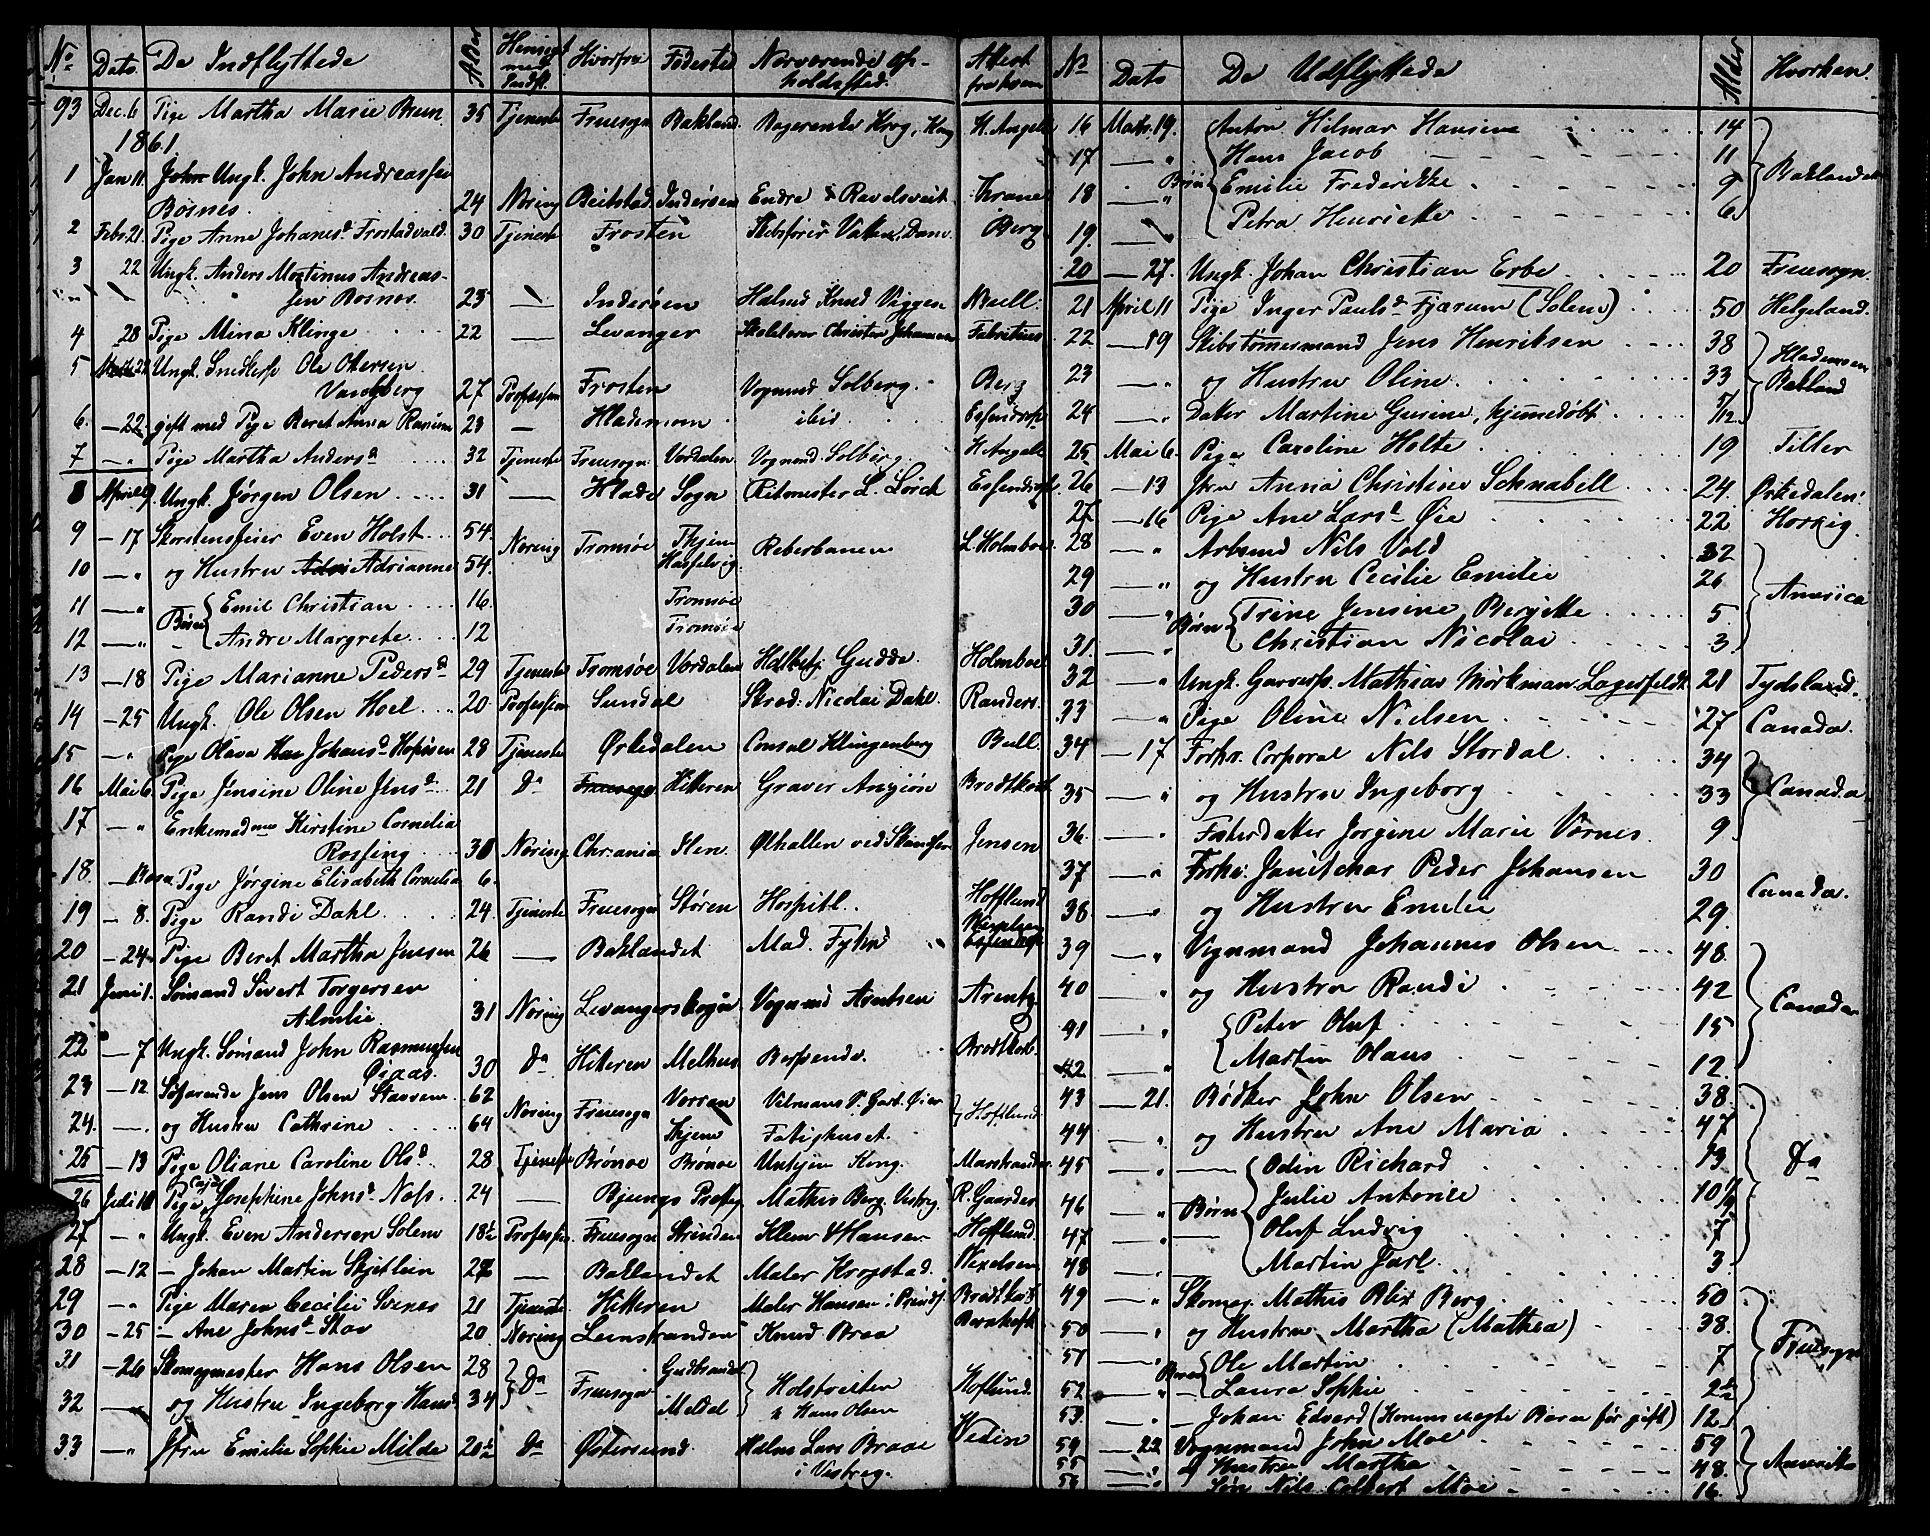 No Dato De Indflyttede Alder Hensigt med Indfl. Hvorfra Fødested Nærværende Opholdssted. Attest fra hvem
93 Dec. 6 Pige Martha Marie Brun 35 Tjeneste Fruesogn Bakland. H. Angell
1861.
1 Jan 11 John Ungk. John Andreassen
Bosnes. 24 Næring Beitstad Inderøen Krane
2 Febr. 21. Pige Anne Johansd. Frostadvald. 30 Tjeneste Frosten Skibsfører Dam. Berg
3 22 Ungk. Anders Martinus Andreas-
sen Bosnes. 23 — Inderøen Knud Viggen Buell.
4 28 Pige Mina Klinge 22 — Levanger Johannsen Fabritius
5 22 Ungk. Snedkersv. Ole
Vangberg 27 Profession Frosten Vognmd Solberg. Berg
6. — 22. gift med Pige Beret Anna 23 — Hlademoen ibid. Essendrop
7 — " Pige Martha Andersd. 32 Tjeneste Fruesogn Værdalen Vognmd. Solberg. H. Angell
8 April 9. Ungk. Jørgen Olsen 31 — Hlade Sogn Ritmester L. Lørck Essendrop
9 — 17 Skorstensfeier Even Holst 54. Næring Tromsøe Reberbanen L. Holmboe.
10 — " og Hustru Adri Adrianne 54. Hasselvig
11 — " Børn Emil Christian 16. Tromsøe
12 — " Andrea Margrete 12 Tromsøe
13 — 18 Pige Marianne Pedersd. 29 Tjeneste Tromsøe Værdalen Gudde. Holmboe
14 — 25 Ungk. Ole Olsen Hoel 20 Profession Sundal Skræd: Nicolai Dahl. Randers.
15 — " Pige Olava Johansd. 28 Tjeneste Ørkedalen Consul Klingenberg Bull.
16 Mai 6. Pige Jensine Oline Jensd. 21 Do Fruesogn Hitteren Graver Brodtkorb
17 — " Enkemadme Kirstine Cornelia
Rossing 30 Næring Chr.ania Ølhallen ved Skandsen Jensen
18. Pige Jørgine Elisabeth Cornelia 6.
19 — 8. Pige Randi Dahl. 24. Tjeneste Fruesogn Støren Hospitl. Hofflund
20 — 24. Pige Beret Martha Jensen 26 — Baklandet Mad. Essendrop
21 Juni 1. Sømand Sivert Torgersen
Almlie 31 Næring Levangerskogn Vognmd Arntsen Arentz
22 — 7 Ungk. Sømand John Rasmussen
Øiaas. 30 Do Hitteren Melhus Brodtkorb.
23 — 12 Søfarende Jens Olsen 62 Næring Fruesogn Hoflund
24. — og Hustru Cathrine 64 Skjerne Fatighuset.
25 — 13 Pige Oliane Caroline Olsd. 28 Tjeneste Brønøe Brønøe Marstrander
26 Juli 10 Pige Josephine Johnsd. Næss. 24 — Mathis Berg. R. Gaarder
27 — " Ungk. Even Andersen Solem 18½ Profession Fruesogn Strinden Hofflund
28 — 12 — Johan Martin Skjetlein 27 — Baklandet Maler Krogstad. Wexelsen
29 — " Pige Maren Cecilie Svenes 21 Tjeneste Hitteren Maler Hansen i Brodtkorb
30 — 25 — Ane Johnsd. Stav 20. Næring Leinstranden Knud Braa
31 — 26 Skomagmester Hans Olsen 28 Do Fruesogn Hoflund.
32 — " og Hustru Ingeborg Hansd. 34 Meldal Hans Olsen
33 — " Jfru Emilie Sophie Milde 20½ Do Østersund Lars Braae Wedin
No Dato De Udflyttede Alder Hvorhen.
16 Marts 19. Anton Hilmar Hansen 14 Baklandet
17 — " Hans Jacob 11
18 — " Børn Emilie Frederikke 9
19. — " Petra Henrikke 6
20 — 27. Ungk. Johan Christian Erbe 20 Fruesogn.
21 April 11 Pige Inger Paulsd. Fjærum (Solem) 50 Helgeland.
22 — 19 Skibstømmermand Jens Henriksen 38 Hlademoen Bakland
23 — " og Hustru Oline 33
24 — " Datter Martine Gurine, hjemmedøbt 5/12
25 Mai 6. Pige Caroline Holte 19 Tiller
26 — 13 Jfru Anna Christine Schnabell 24. Ørkedalen.
27 — 16 Pige Ane Larsd. Øie 22
28 — " Arbmd Nils Vold 32 America
29 — " og Hustru Cecilie Emilie 26
30 — " Børn Trine Jensine Bergitte 5
31. — " Christian Nicolai 3
32 — " Ungk. Garversv. Mathias Mørkman Lagerfeldt 21 Tydsland.
33 — " Pige Oline Nielsen 27 Canada.
34 — 17 Forhv. Corporal Nils Stordal 34 Canada
35 — " og Hustru Ingeborg 33
36 — " Fosterdatter Jørgine Marie Værnes 9
37 — " Forhv. Janitschar Peder Johansen 30 Canada.
38 — " og Hustru Emilie 29.
39 — " Vognmand Johannes Olsen 48 Canada
40 — " og Hustru Randi 42
41 — " Peter Oluf 15
42 — " Martin Olaus 12
43 — 21. Bødker John Olsen 38. Do
44 — " og Hustru Ane Maria 47
45 — " Odin Richard 13
46 — " Børn Julie Antonie 10½
47 — " Oluf Ludvig 7
48 — " Martin Jarl 3
49 — " Skomag. Mathis Blix Berg 50 Fruesogn
50 — " og Hustru Martha (Mathea) 38.
51 — " Børn Ole Martin 7
52 — " Laura Sophie 2½
53. — " — Johan Edvard (Konens uægte Barn før gift) 12
54 — 22 Vognmand John Moe 59 America
55 — " og Hustru Martha 48
56 — " Søn Nils Colbert Moe 16